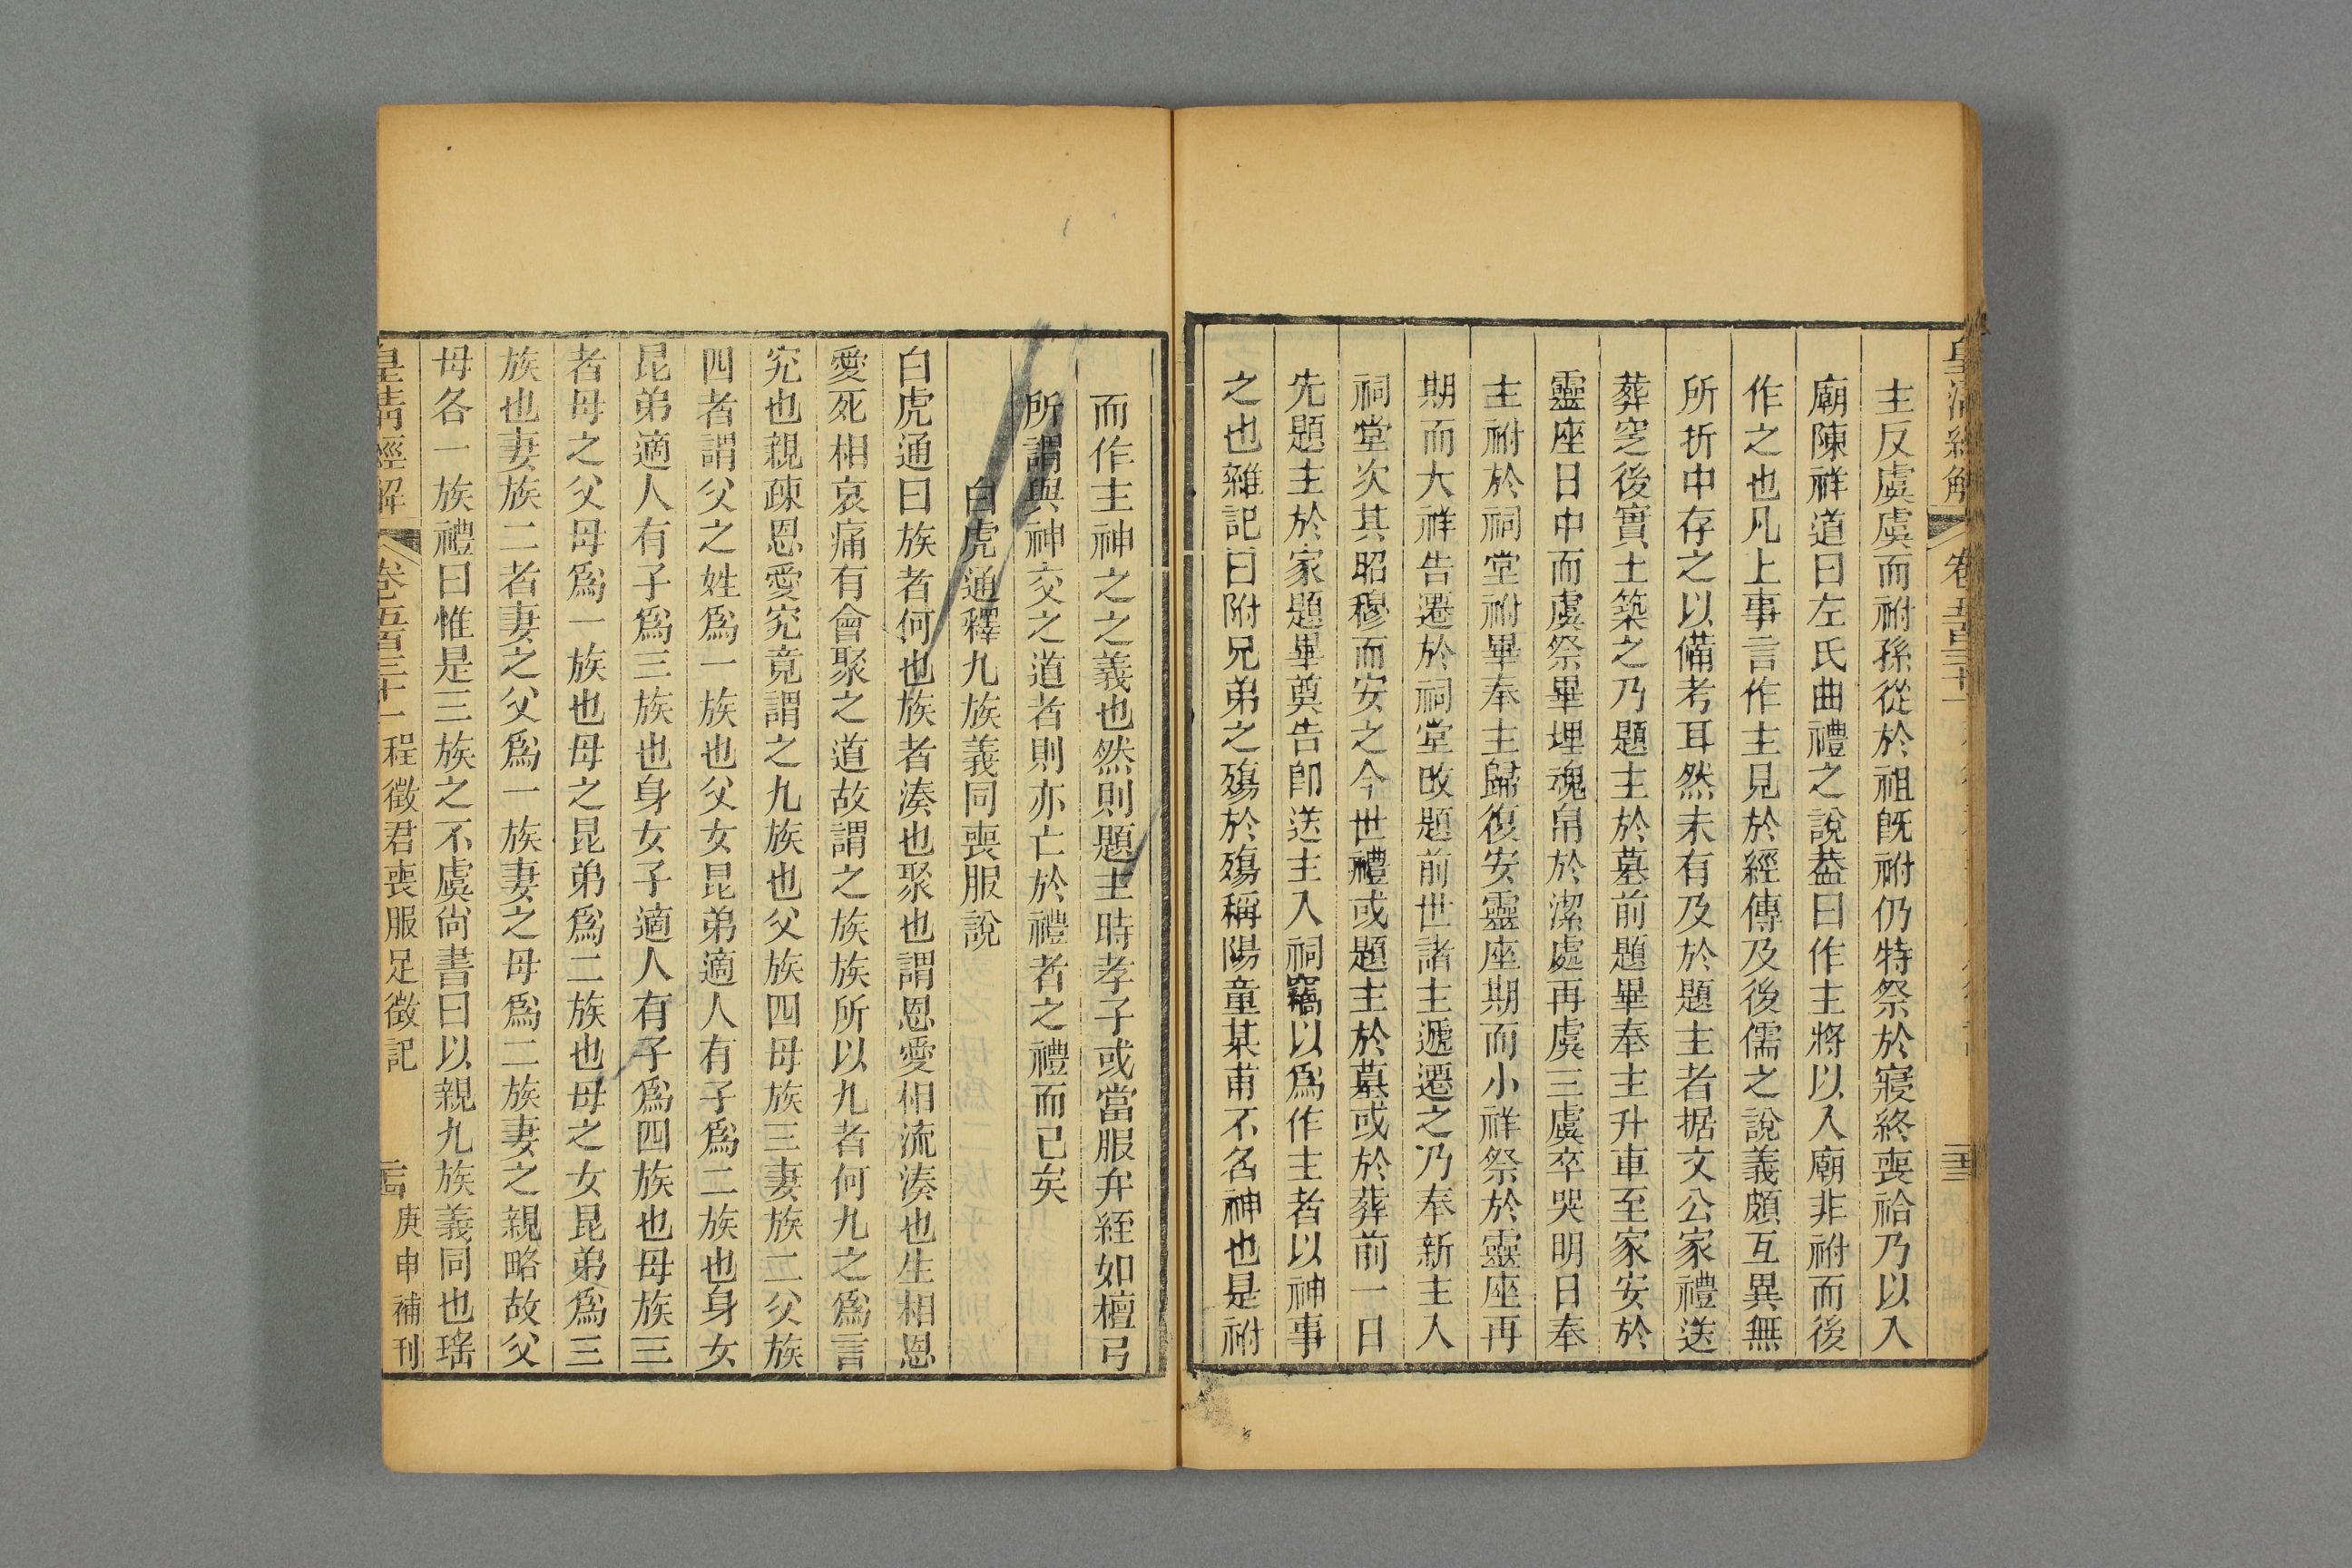 主反虞虞而祔孫從於祖旣祔仍特祭於寢終喪祫乃以入
廟陳祥道曰左氏曲禮之說葢曰作主將以入廟非祔而後
作之也凡上事言作主見於經傳及後儒之說義頗互異無
所折中存之以備考耳然未有及於題主者据文公家禮送
葬窆後實土築之乃題主於墓前題畢奉主升車至家安於
靈座日中而虞祭畢埋魂帛於潔處再虞三虞卒哭明日奉
主祔於祠堂祔畢奉主歸復安靈座期而小祥祭於靈座再
期而大祥告遷於祠堂改題前世諸主遞遷之乃奉新主入
祠堂次其昭穆而安之今世禮或題主於墓或於葬前一日
先題主於家題畢奠告卽送主入祠竊以爲作主者以神事
之也雜記曰附兄弟之殤於殤稱陽童某甫不名神也是祔
而作主神之之義也然則題主時孝子或當服弁絰如檀弓
所謂與神交之道者則亦亡於禮者之禮而已矣
白虎通釋九族義同喪服說
白虎通曰族者何也族者湊也聚也謂恩愛相流湊也生相恩
愛死相哀痛有會聚之道故謂之族族所以九者何九之爲言
究也親疎恩愛究竟謂之九族也父族四母族三妻族二父族
四者謂父之姓爲一族也父女昆弟適人有子爲二族也身女
昆弟適人有子爲三族也身女子適人有子爲四族也母族三
者母之父母爲一族也母之昆弟爲二族也母之女昆弟爲三
族也妻族二者妻之父爲一族妻之母爲二族妻之親略故父
母各一族禮曰惟是三族之不虞尙書曰以親九族義同也瑤
皇清經解 卷五百三十一 程徵君喪服足徵記 庚申補刊